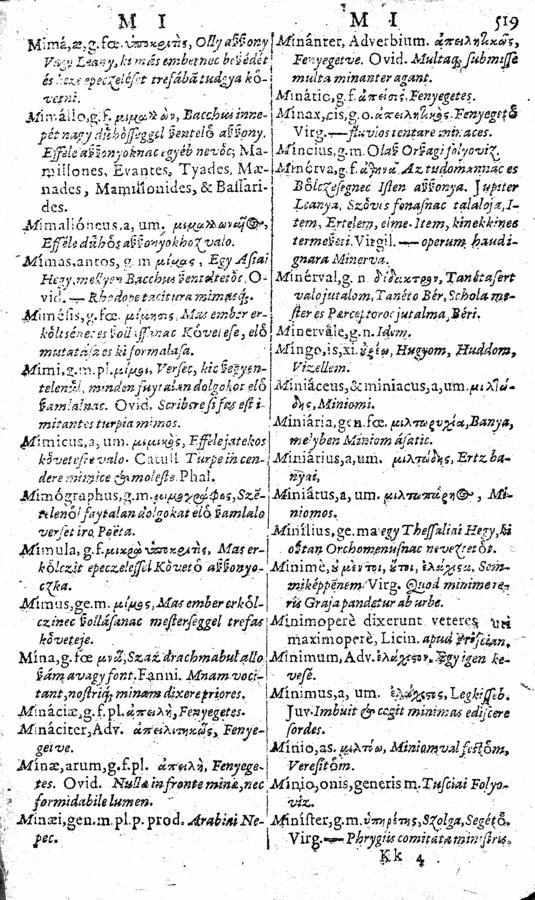 M I
M I 519
Mimá, æ, g. fœ. ὑποκριτὴς, Olly aßßony
Vagy Leany, ki más embernec beßédét
és
trefábā tudgya kö-
vetni.
Mimállo, g. f. μιμαλλών, Bacchus inne-
pét nagy dühösseggel ßentelö aßßony.
Efféle aßßonyoknac egyéb nevöc; Ma-
millones, Evantes, Tyades, Mæ-
nades, Mamillonides, & Bassari-
des.
Mimallóneus, a, um.
Efféle dühös aßßonyokhoz valo.
Mimas, antos, g. m μίμας, Egy Asiai
Hegy, mellyen Bacchus ßenteltetöt. O-
vid. — Rhodope tacitura mimasq;.
Mimésis, g. fœ. μίμησις, Mas ember er-
Követ ese, elö
mutatása es ki formalasa.
Mimi, g. m. pl. μίμοι, Versec, kic ßegyen-
telenül, minden faytalan dolgokot elö
ßamlalnac. Ovid. Scribere si fas est i-
mitantes turpia mimos.
Mimicus, a, um. μιμικὸς, Effele jatekos
követesre valo. Catull Turpe incen-
dere mimice & moleste. Phal.
Mimógraphus, g. m. μιμογράφος, Szé-
telenöl faytalan dolgokat elö ßamlalo
verset iro Poëta.
Mimula, g. f. μικρὰ ὑποκριτὴς, Mas er-
kölczit epeczeléssel Követö aßßonyo-
czka.
Mimus, ge. m. μίμος, Mas ember erköl-
czinec ßollásanac mesterseggel trefas
követeje.
Mina, g. fœ μνᾶ, Száz drachmabul allo
ßám, avagy font. Fanni. Mnam voci-
tant, nostriq; minam dixere priores.
Mináciæ, g. f. pl. ἀπειλὴ, Fenyegetes.
Mináciter, Adv. ἀπειλητικῶς, Fenye-
getve.
Minæ, arum, g. f. pl. ἀπειλὴ, Fenyege-
tes. Ovid. Nullæ in fronte minæ, nec
formidabile lumen.
Minæi, gen. m. pl. p. prod. Arabiai Ne-
pec.
Minánter, Adverbium. ἀπειλητικῶς,
Fenyegetve. Ovid. Multaq; submissè
multa minanter agant.
Minátio, g. f. Fenyegetes.
Minax, cis, g. o. ἀπειλητικὸς. Fenyegetö
Virg. — fluvios tentare minaces.
Mincius, g. m. Olaß Orßagi folyoviz.
Minérva, g. f. ἀθηνᾶ. Az tudomannac es
Bölczesegnec Isten aßßonya. Jupiter
Leanya, Szövis fonasnac talaloja, I-
tem, Ertelem, elme. Item, kinekkines
termeßeti. Virgil. — operum haudi-
gnara Minerva.
Minérval, g. n. δίδακτρον, Tanétasert
valo jutalom, Tanéto Bér, Schola me-
ster es Perceptoroc jutalma, Béri.
Minervále, g. n. Idem.
Mingo, is, xi. οὐρέω, Hugyom, Huddom,
Vizellem.
Miniáceus, & miniacus, a, um. μιλτώ-
δης, Miniomi.
Miniária, gen. fœ. μιλτωρυχία, Banya,
melyben Miniom ásatic.
Miniárius, a, um. μιλτώδης, Ertz ba-
nyai,
Miniátus, a, um. Mi-
niomos.
Minílius, ge. ma egy Thessaliai Hegy, ki
osztan Orchomenusnac neveztetöt.
Minimè, Sem-
miképpēnem Virg. Quod minime re-
ris Graja pandetur ab urbe.
Minimoperè dixerunt veteres uti
maximoperè, Licin. apud Priscian.
Minimum, Adv. ἐλάχιστον, Egy igen ke-
vesé.
Minimus, a, um. ἐλάχιστος, Legkisseb.
Juv. Imbuit & cogit minimas ediscere
sordes.
Minio, as. μιλτόω, Miniomval festöm,
Veresitöm.
Minio, onis, generis m. Tusciai Folyo-
viz.
Miníster, g. m. ὑπηρέτης, Szolga, Segétö.
Virg. — Phrygiis comitata ministris.
Kk 4